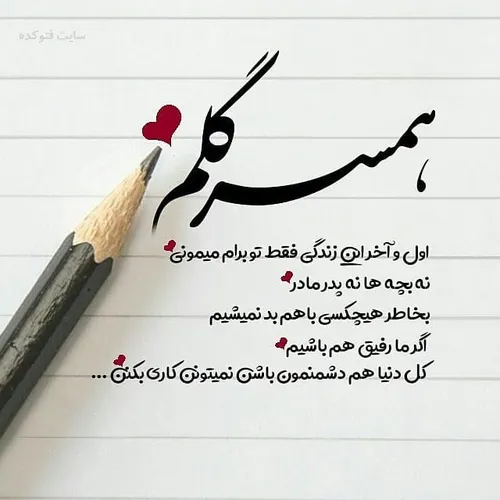 سایت فتوکده
همسر گلم
اول و آخر این زندگی فقط تو برام میمونی
نه بچه ها نه پدر مادر
بخاطر هیچکسی باهم بد نمیشیم
اگر ما رفیق هم باشیم
کل دنیا هم دشمنمون باشن نمیتونن کاری بکنن ...